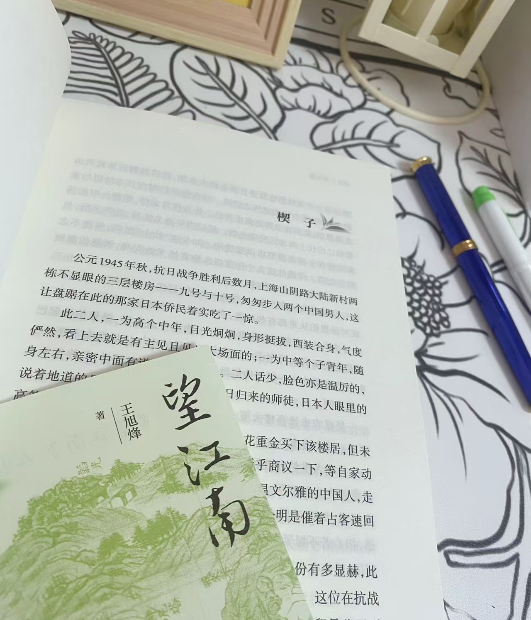 S
楔 子
公元1945年秋，抗日战争胜利后数月，上海山阴路大陆新村两
栋不显眼的三层楼房——九号与十号，匆匆步入两个中国男人，这
让盘踞在此的那家日本侨民着实吃了一惊。
此二人，一为高个中年，目光炯炯，身形挺拔，西装合身，气度
俨然，看上去就是有主见且见 大场面的；一为中等个子青年，随
身左右，亲密中面有 二人话少，脸色亦是温厉的，
说着地道的 日归来的师徒，日本人眼里的
花重金买下该楼居，但未
乎商议一下，等自家动
文尔雅的中国人，走
明是催着占客速回
份有多显赫，此
这位在抗战
望江南
王旭烽
著